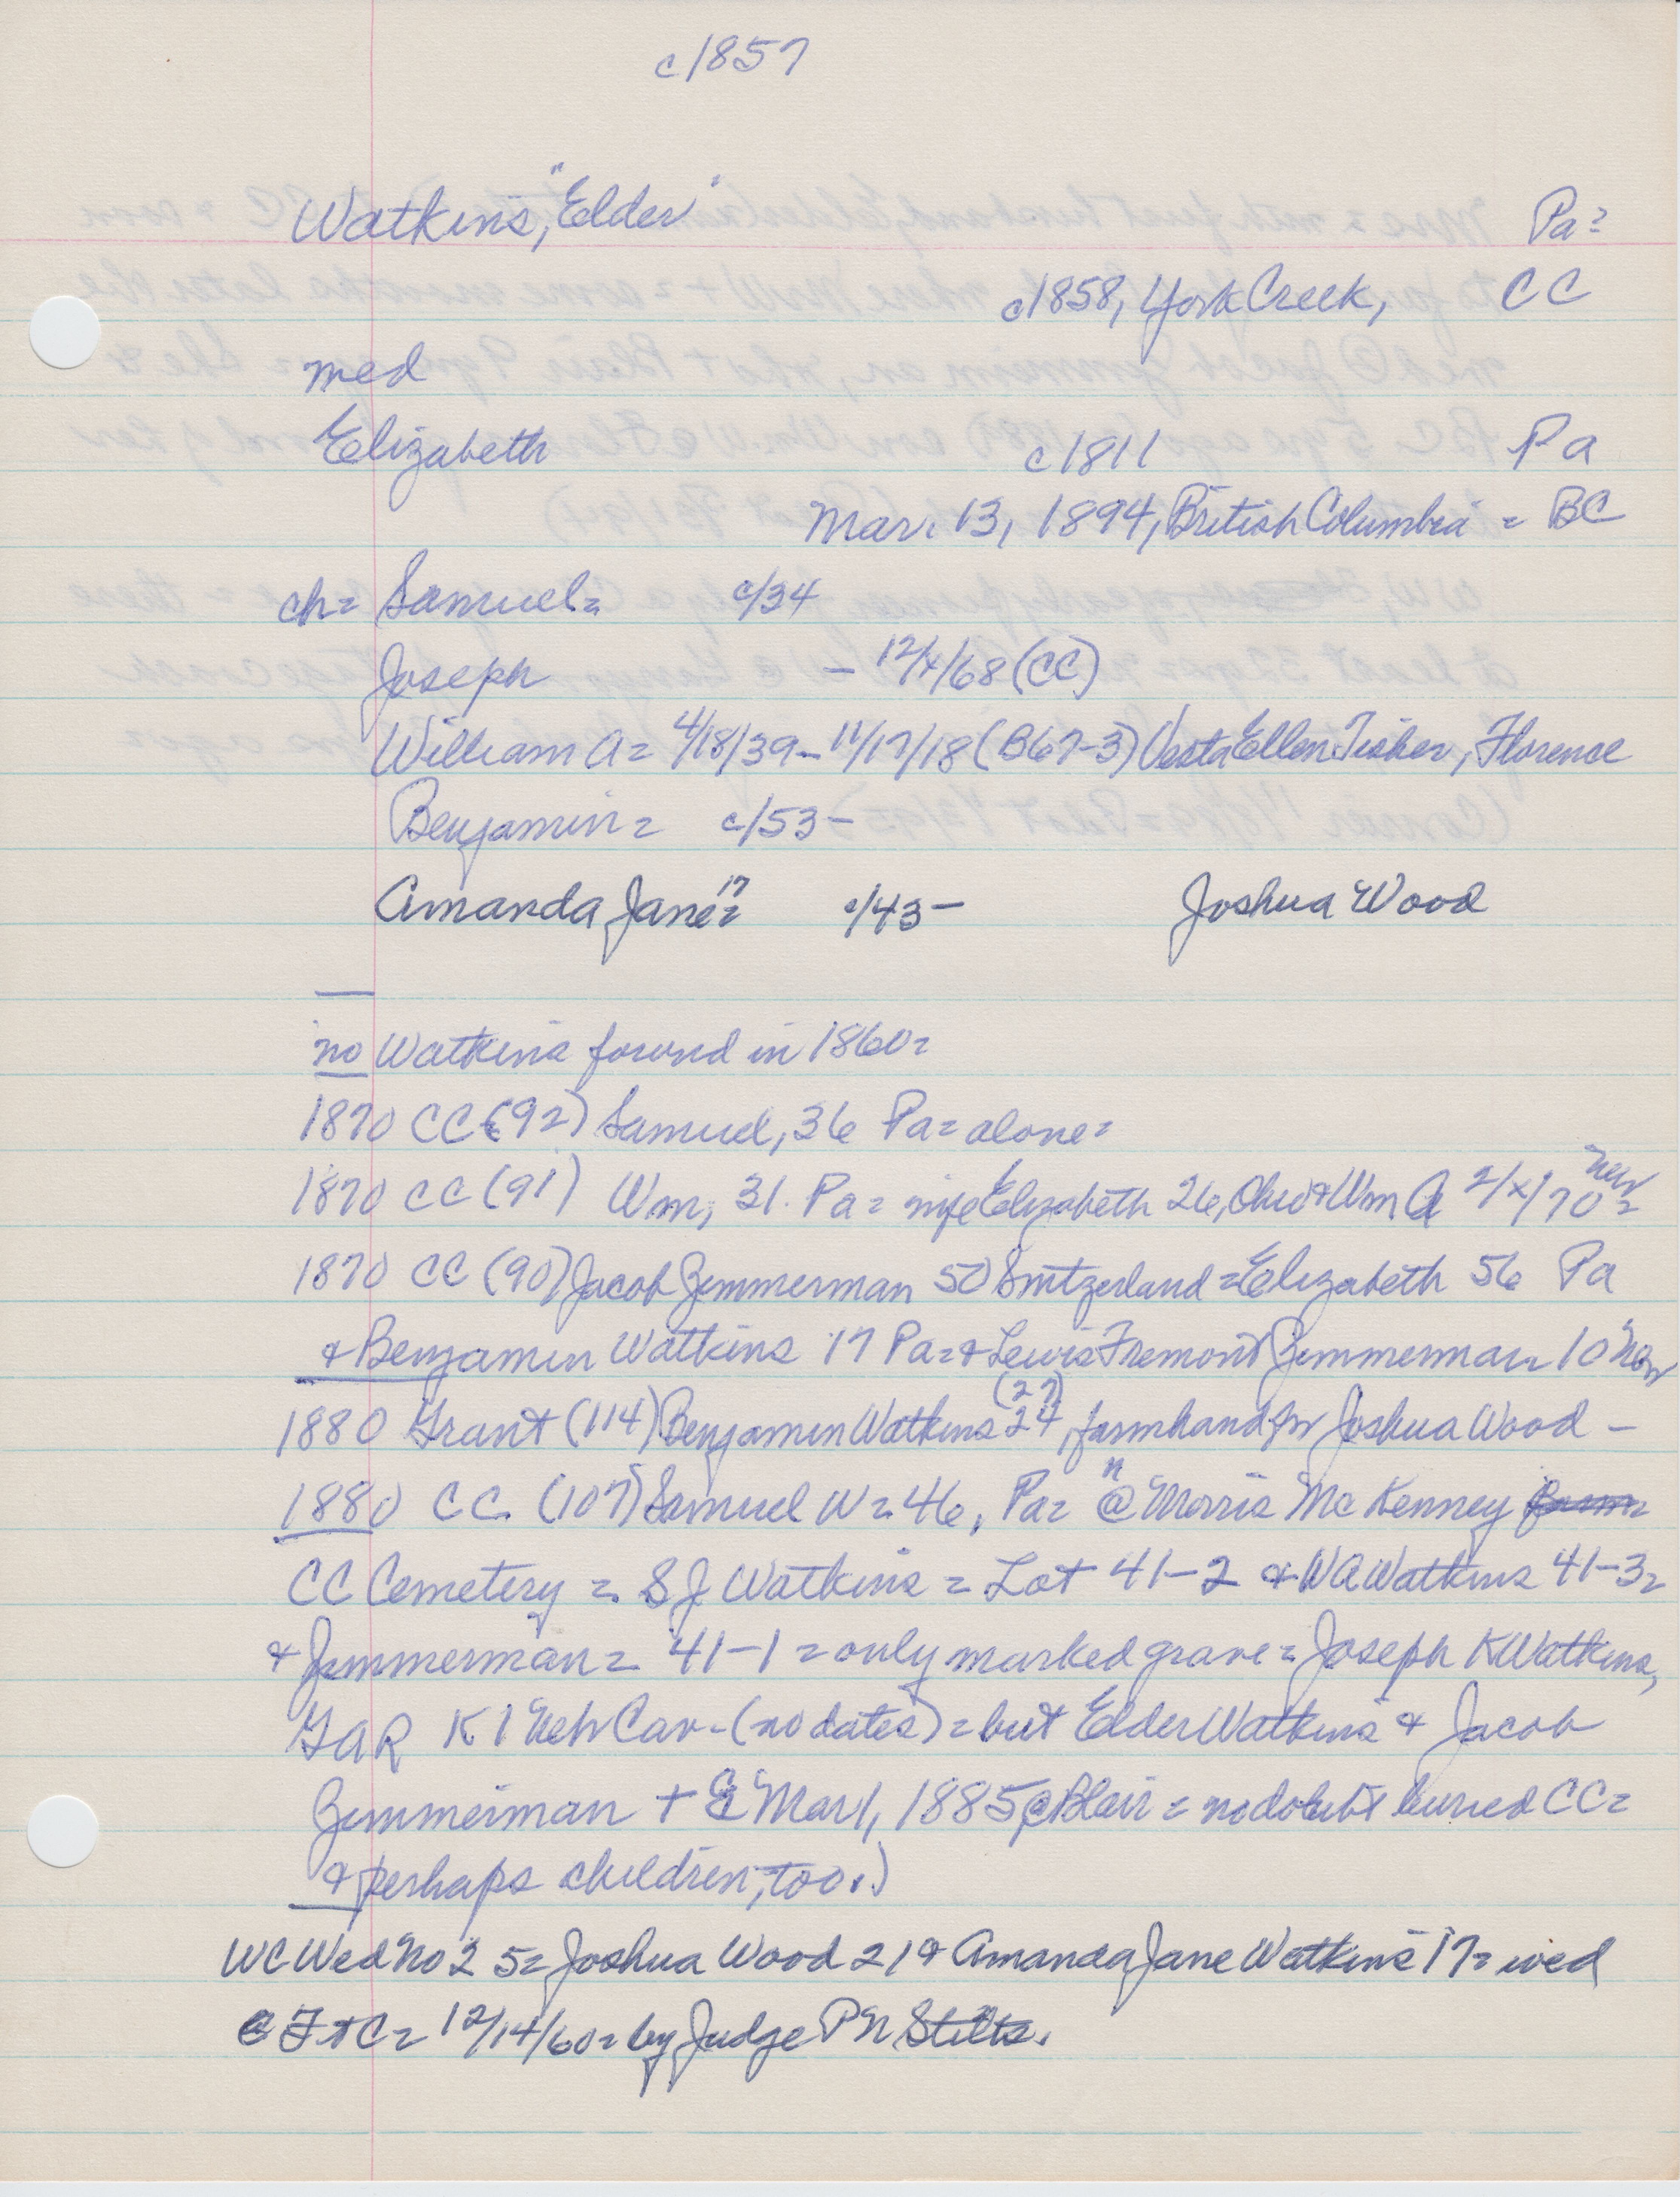 c1857
Watkins, "Elder" Pa=
c1858, York Creek, CC
med
Elizabeth c1811 Pa
Mar. 13, 1894, British Columbia = BC
ch= Samuel= c/34
Joseph - 12/x/68 (CC)
William A= 4/18/39 - 11/17/18 (B67-3) Vesta Ellen Tisher, Florence
Benjamin= c/53 -
Amanda Jane 17= c/43 - Joshua Wood
no Watkins found in 1860=
1870 CC (92) Samuel, 36 Pa= alone=
1870 CC (91) Wm, 31. Pa= wife Elizabeth 26, Ohio & Wm A 2/x/70 Neb=
1870 CC (90) Jacob Zimmerman 50 Switzerland = Elizabeth 56 Pa
& Benjamin Watkins 17 Pa= & Lewis Fremont Zimmerman 10 Neb
1880 Grant (114) Benjamin Watkins 24 (27), farmhand for Joshua Wood -
1880 CC. (107) Samuel W= 46, Pa= @ Morris McKenney
CC Cemetery = S J Watkins = Lot 41-2 & WA Watkins 41-3=
& Zimmerman= 41-1 = only marked grave = Joseph K Watkins,
GAR K 1 Neb Cav - (no dates) = but Elder Watkins & Jacob
Zimmerman + Mar 1, 1885 @ Blair = no doubt buried CC=
& perhaps children, too.)
WC Wed No 25= Joshua Wood 21 & Amanda Jane Watkins 17= wed
@ Ft C= 12/14/60= by Judge PN Stilts.